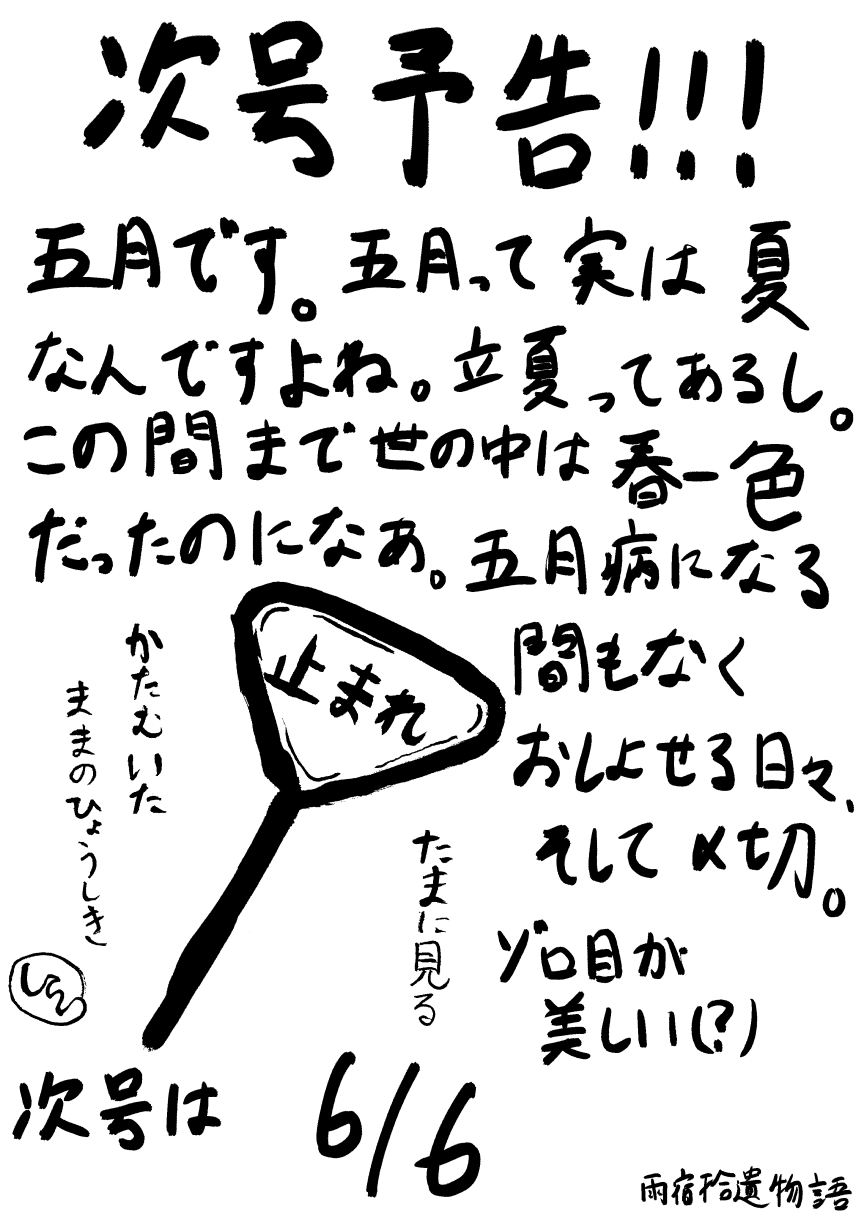 次号予告!!!
五月です。五月って実は夏
なんですよね。立夏ってあるし。
この間まで世の中は春一色
だったのになあ。五月病になる
間もなく
おしよせる日々、
そして〆切。
ゾロ目が
美しい(?)
止まれ
たまに見る
かたむいた
ままのひょうしき
次号は 6/6
雨宿拾遺物語